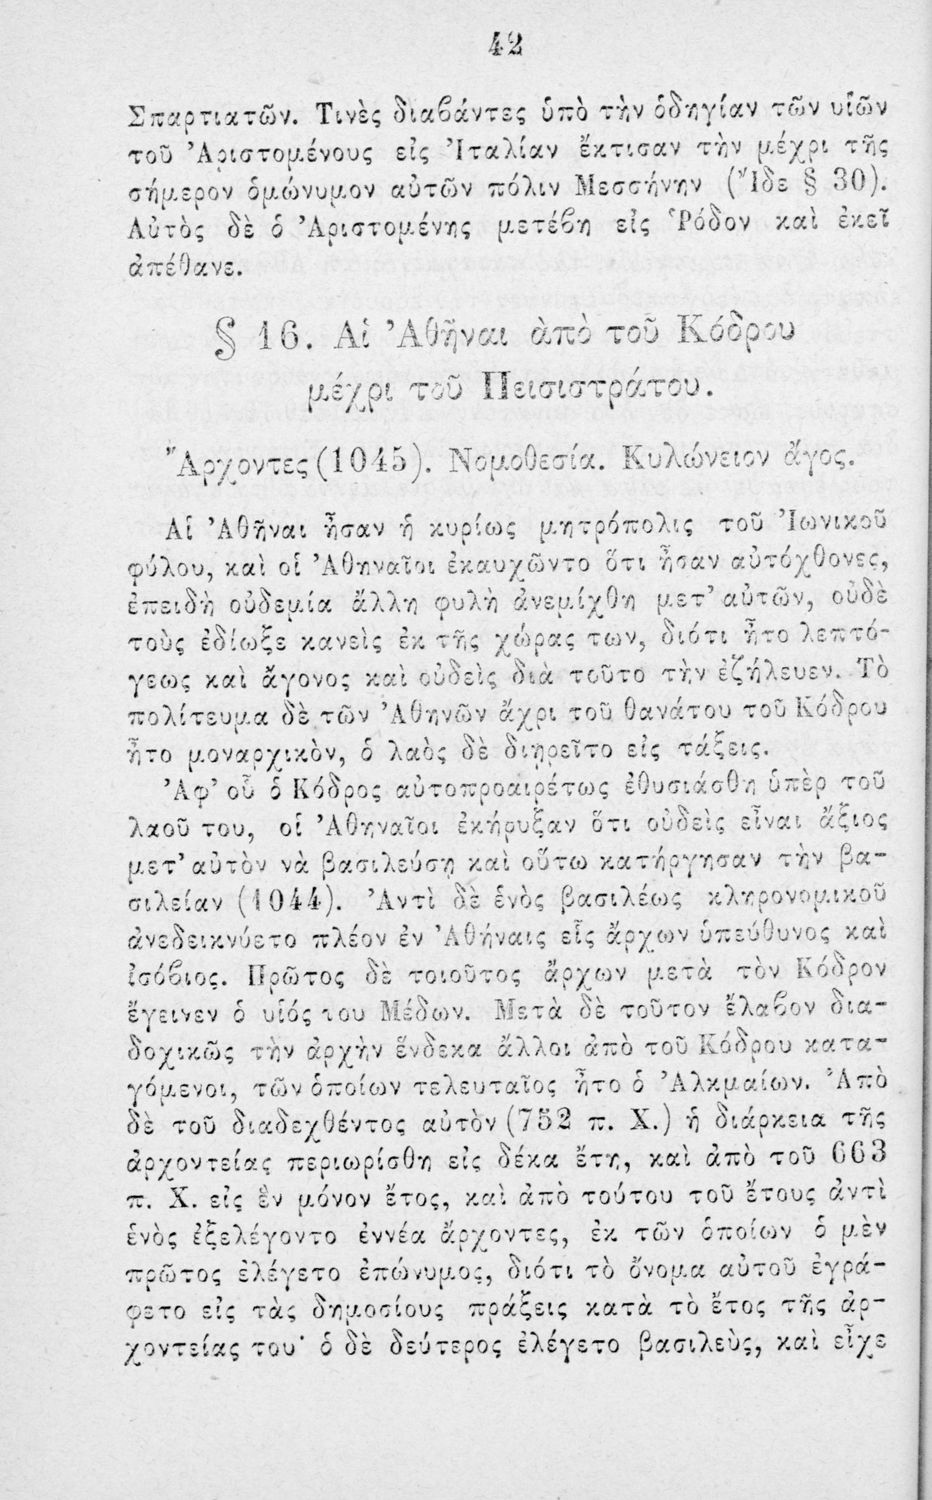 42
Σπαρτιατῶν. Τινὲς διαβάντες ὑπὸ τὴν ὁδηγίαν τῶν υἱῶν
τοῦ Ἀριστομένους εἰς Ἰταλίαν ἔκτισαν τὴν μέχρι τῆς
σήμερον ὁμώνυμον αὐτῶν πόλιν Μεσσήνην (Ἴδε § 30).
Αὐτὸς δὲ ὁ Ἀριστομένης μετέβη εἰς Ῥόδον καὶ ἐκεῖ
ἀπέθανε.
§ 16. Αἱ Ἀθῆναι ἀπὸ τοῦ Κόδρου
μέχρι τοῦ Πεισιστράτου.
Ἄρχοντες (1045). Νομοθεσία. Κυλώνειον ἄγος.
Αἱ Ἀθῆναι ἦσαν ἡ κυρίως μητρόπολις τοῦ Ἰωνικοῦ
φύλου, καὶ οἱ Ἀθηναῖοι ἐκαυχῶντο ὅτι ἦσαν αὐτόχθονες,
ἐπειδὴ οὐδεμία ἄλλη φυλὴ ἀνεμίχθη μετ' αὐτῶν, οὐδὲ
τοὺς ἐδίωξε κανεὶς ἐκ τῆς χώρας των, διότι ἦτο λεπτό-
γεως καὶ ἄγονος καὶ οὐδεὶς διὰ τοῦτο τὴν ἐζήλευεν. Τὸ
πολίτευμα δὲ τῶν Ἀθηνῶν ἄχρι τοῦ θανάτου τοῦ Κόδρου
ἦτο μοναρχικὸν, ὁ λαὸς δὲ διῃρεῖτο εἰς τάξεις.
Ἀφ' οὗ ὁ Κόδρος αὐτοπροαιρέτως ἐθυσιάσθη ὑπὲρ τοῦ
λαοῦ του, οἱ Ἀθηναῖοι ἐκήρυξαν ὅτι οὐδεὶς εἶναι ἄξιος
μετ' αὐτὸν νὰ βασιλεύσῃ καὶ οὕτω κατήργησαν τὴν βα-
σιλείαν (1044). Ἀντὶ δὲ ἑνὸς βασιλέως κληρονομικοῦ
ἀνεδεικνύετο πλέον ἐν Ἀθήναις εἷς ἄρχων ὑπεύθυνος καὶ
ἰσόβιος. Πρῶτος δὲ τοιοῦτος ἄρχων μετὰ τὸν Κόδρον
ἔγεινεν ὁ υἱός του Μέδων. Μετὰ δὲ τοῦτον ἔλαβον δια-
δοχικῶς τὴν ἀρχὴν ἕνδεκα ἄλλοι ἀπὸ τοῦ Κόδρου κατα-
γόμενοι, τῶν ὁποίων τελευταῖος ἦτο ὁ Ἀλκμαίων. Ἀπὸ
δὲ τοῦ διαδεχθέντος αὐτὸν (752 π. Χ.) ἡ διάρκεια τῆς
ἀρχοντείας περιωρίσθη εἰς δέκα ἔτη, καὶ ἀπὸ τοῦ 663
π. Χ. εἰς ἓν μόνον ἔτος, καὶ ἀπὸ τούτου τοῦ ἔτους ἀντὶ
ἑνὸς ἐξελέγοντο ἐννέα ἄρχοντες, ἐκ τῶν ὁποίων ὁ μὲν
πρῶτος ἐλέγετο ἐπώνυμος, διότι τὸ ὄνομα αὐτοῦ ἐγρά-
φετο εἰς τὰς δημοσίους πράξεις κατὰ τὸ ἔτος τῆς ἀρ-
χοντείας του· ὁ δὲ δεύτερος ἐλέγετο βασιλεὺς, καὶ εἶχε